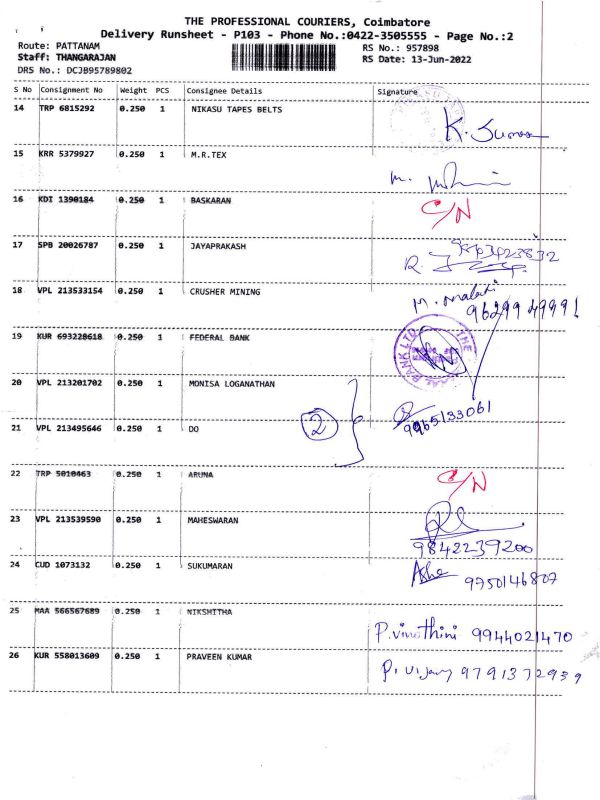 THE PROFESSIONAL COURIERS, Coimbatore
Delivery Runsheet - P103 - Phone No.:0422-3505555 - Page No.:2
Route: PATTANAM RS No.: 957898
Staff: THANGARAJAN RS Date: 13-Jun-2022
DRS No.: DCJB95789802
S No Consignment No Weight PCS Consignee Details Signature
14 TRP 6815292 0.250 1 NIKASU TAPES BELTS
K. Suman
15 KRR 5379927 0.250 1 M.R.TEX
M.
16 KDI 1390184 0.250 1 BASKARAN C/N
17 SPB 20026787 0.250 1 JAYAPRAKASH
R.
18 VPL 213533154 0.250 1 CRUSHER MINING M. Malathi
9629949991
19 KUR 693228618 0.250 1 FEDERAL BANK
BANK LTD THE
20 VPL 213201702 0.250 1 MONISA LOGANATHAN
9965133061
21 VPL 213495646 0.250 1 DO 2
22 TRP 5010463 0.250 1 ARUNA C/N
23 VPL 213539590 0.250 1 MAHESWARAN
9842239200
24 CUD 1073132 0.250 1 SUKUMARAN Asha 9750146807
25 MAA 566567689 0.250 1 NIKSHITHA
P.vinothini 9944021470
26 KUR 558013609 0.250 1 PRAVEEN KUMAR P. vijay 9791372939